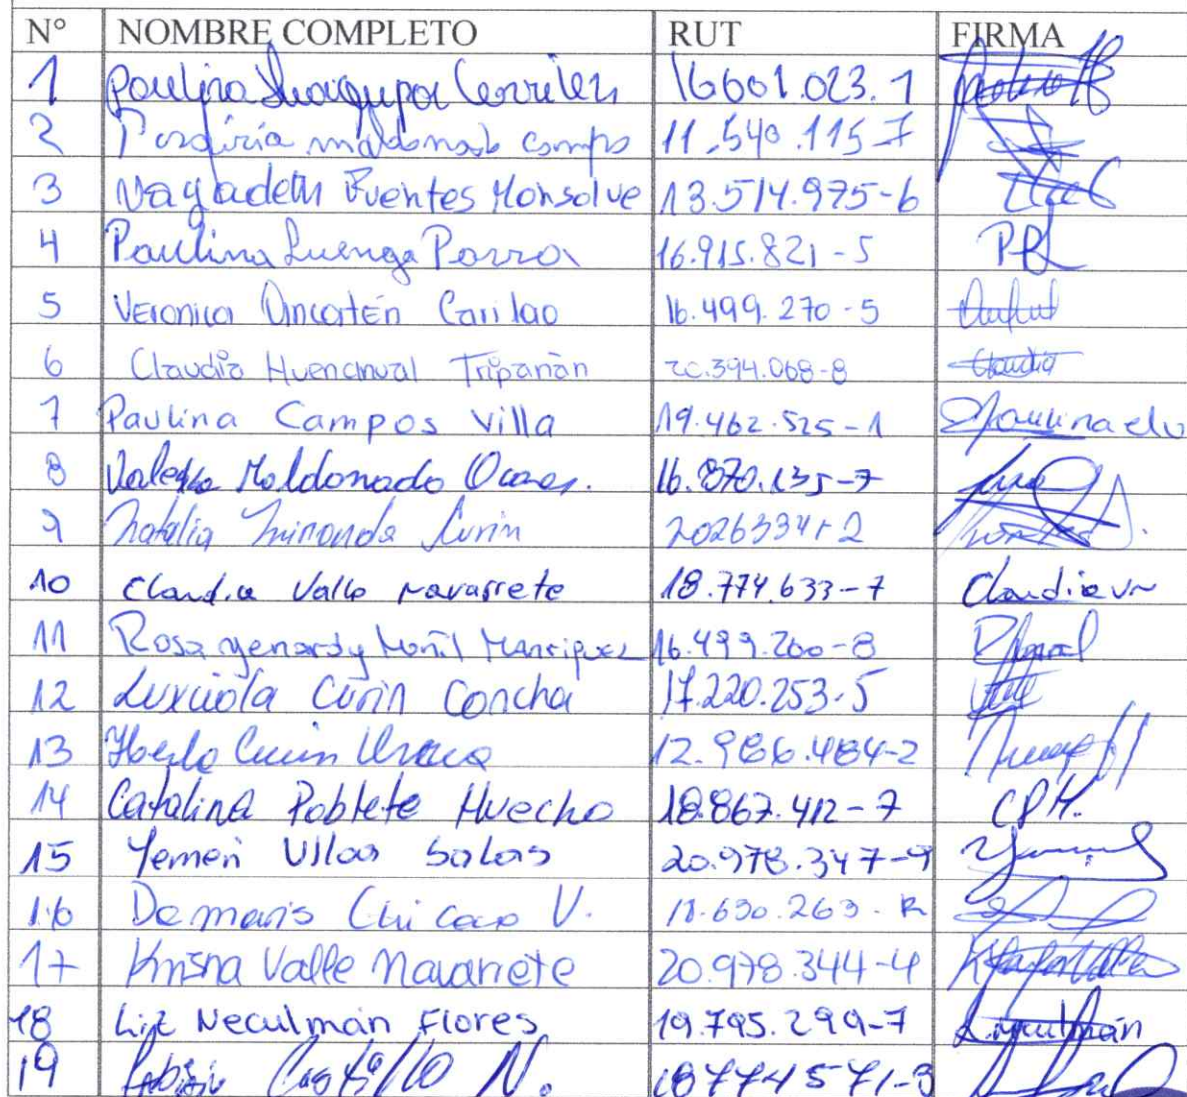 N° NOMBRE COMPLETO RUT FIRMA
1 Paulina 16601.023.1
2 maldonado campo 11.540.115-7
3 Nayadeth Fuentes Monsolve 13.514.975-6
4 Paulina Luenga Parra 16.915.821-5 PL
5 Veronica Ancatén Carilao 16.499.270-5
6 Claudia Huenchual Tripañán 20.394.068-8 Claudia
7 Paulina Campos Villa 19.462.525-1 Paulina
8 Maldonado 16.870.135-7
9 Natalia Miranda Curin
10 Claudia Valle Navarrete 18.774.633-7 Claudia VN
11 Rosa yenardy Moñil Manriquez 16.499.260-8
12 Luxciola Curin Concha 17.220.253-5
13 Curin 12.986.484-2
14 Catalina Poblete Huecho 18.867.412-7 CPH.
15 Yemen Ulloa Salas 20.978.347-9
16 Demaris V. 18.630.263.K
17 Krisna Valle Navarrete 20.978.344-4
18 Liz Neculmán Flores 19.795.299-7
19 Castillo N. 18774571-3